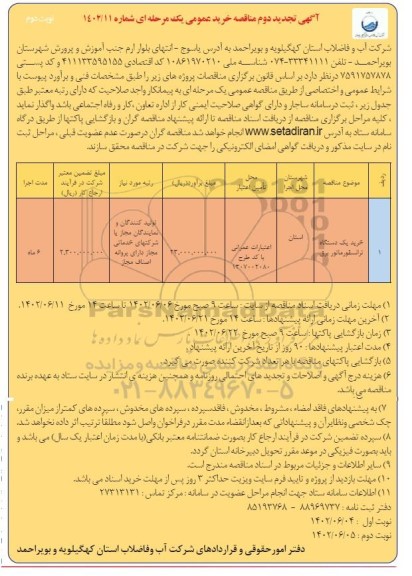 نوبت دوم
آگهی تجدید دوم مناقصه خرید عمومی یک مرحله ای شماره ۱۴۰۲/۱۱
شرکت آب و فاضلاب استان کهگیلویه و بویراحمد به آدرس یاسوج - انتهای بلوار ارم جنب آموزش و پرورش شهرستان
بویراحمد - تلفن ۳۳۳۴۱۱۱۱-۰۷۴ شناسه ملی ۱۰۸۶۱۹۷۰۲۱۰ کد اقتصادی ۴۱۱۱۳۳۵۹۵۱۵۵ و کد پستی
۷۵۹۱۷۵۷۸۷۸ درنظر دارد بر اساس قانون برگزاری مناقصات پروژه های زیر را طبق مشخصات فنی و برآورد پیوست با
شرایط عمومی و اختصاصی از طریق مناقصه عمومی یک مرحله ای به پیمانکار واجد صلاحیت که دارای رتبه معتبر طبق
جدول زیر ، ثبت درسامانه ساجار و دارای گواهی صلاحیت ایمنی کار از اداره تعاون ،کار و رفاه اجتماعی باشد واگذار نماید
، کلیه مراحل برگزاری مناقصه از دریافت اسناد مناقصه تا ارائه پیشنهاد مناقصه گران و بازگشایی پاکتها از طریق درگاه
سامانه ستاد به آدرس www.setadiran.ir انجام خواهد شد مناقصه گران درصورت عدم عضویت قبلی ، مراحل ثبت
نام در سایت مذکور و دریافت گواهی امضای الکترونیکی را جهت شرکت در مناقصه محقق سازند.
ردیف | موضوع مناقصه | شهرستان محل اجرا | محل تامین اعتبار | مبلغ برآورد(ریال) | رتبه مورد نیاز | مبلغ تضمین معتبر شرکت در فرآیند ارجاع کار (ریال) | مدت اجرا
۱ | خرید یک دستگاه ترانسفورماتور برق | استان | اعتبارات عمرانی با کد طرح ۱۳۰۷۰۰۲۰۸۰ | ۲۳,۰۰۰,۰۰۰,۰۰۰ | تولید کنندگان و نمایندگان مجاز یا شرکتهای خدماتی مجاز دارای پروانه اصناف مجاز | ۲,۳۰۰,۰۰۰,۰۰۰ | ۶ ماه
۱) مهلت زمانی دریافت اسناد مناقصه از سایت : ساعت ۹ صبح مورخ ۱۴۰۲/۰۶/۰۶ تا ساعت ۱۴ مورخ ۱۴۰۲/۰۶/۱۱.
۲) آخرین مهلت زمانی ارائه پیشنهادها : ساعت ۱۴ مورخ ۱۴۰۲/۰۶/۲۱
۳) زمان بازگشایی پاکتها : ساعت ۹ صبح مورخ ۱۴۰۲/۰۶/۲۲
۴) مدت اعتبار پیشنهادها : ۹۰ روز از تاریخ آخرین ارائه پیشنهاد .
۵) بازگشایی پاکتهای مناقصه با هر تعداد شرکت کننده صورت می گیرد.
۶) هزینه درج آگهی و اصلاحات و تجدید های احتمالی روزنامه و همچنین هزینه ی انتشار در سایت ستاد به عهده برنده
مناقصه می باشد.
۷) به پیشنهادهای فاقد امضاء ، مشروط ، مخدوش ، فاقدسپرده ، سپرده های مخدوش ، سپرده های کمتر از میزان مقرر،
چک شخصی ونظایر آن و پیشنهاداتی که بعدازانقضاء مدت مقرر درفراخوان واصل شود مطلقا ترتیب اثر داده نخواهد شد.
۸) سپرده تضمین شرکت در فرآیند ارجاع کار بصورت ضمانتنامه معتبر بانکی(با مدت زمان اعتبار یک سال) می باشد و
باید بصورت فیزیکی در موعد مقرر تحویل دبیرخانه استان گردد.
۹) سایر اطلاعات و جزئیات مربوط در اسناد مناقصه مندرج است.
۱۰) مهلت بازدید از پروژه و تایید فرم سایت ویزیت حداکثر ۳ روز پس از مهلت خرید اسناد می باشد.
۱۱) اطلاعات سامانه ستاد جهت انجام مراحل عضویت در سامانه : مرکز تماس : ۲۷۳۱۳۱۳۱
دفتر ثبت نامه : ۸۸۹۶۹۷۳۷ - ۸۵۱۹۳۷۶۸
نوبت اول : ۱۴۰۲/۰۶/۰۴
نوبت دوم : ۱۴۰۲/۰۶/۰۵
دفتر امورحقوقی و قراردادهای شرکت آب وفاضلاب استان کهگیلویه و بویراحمد
۰۲۱-۸۸۳۴۹۶۷۰-۵